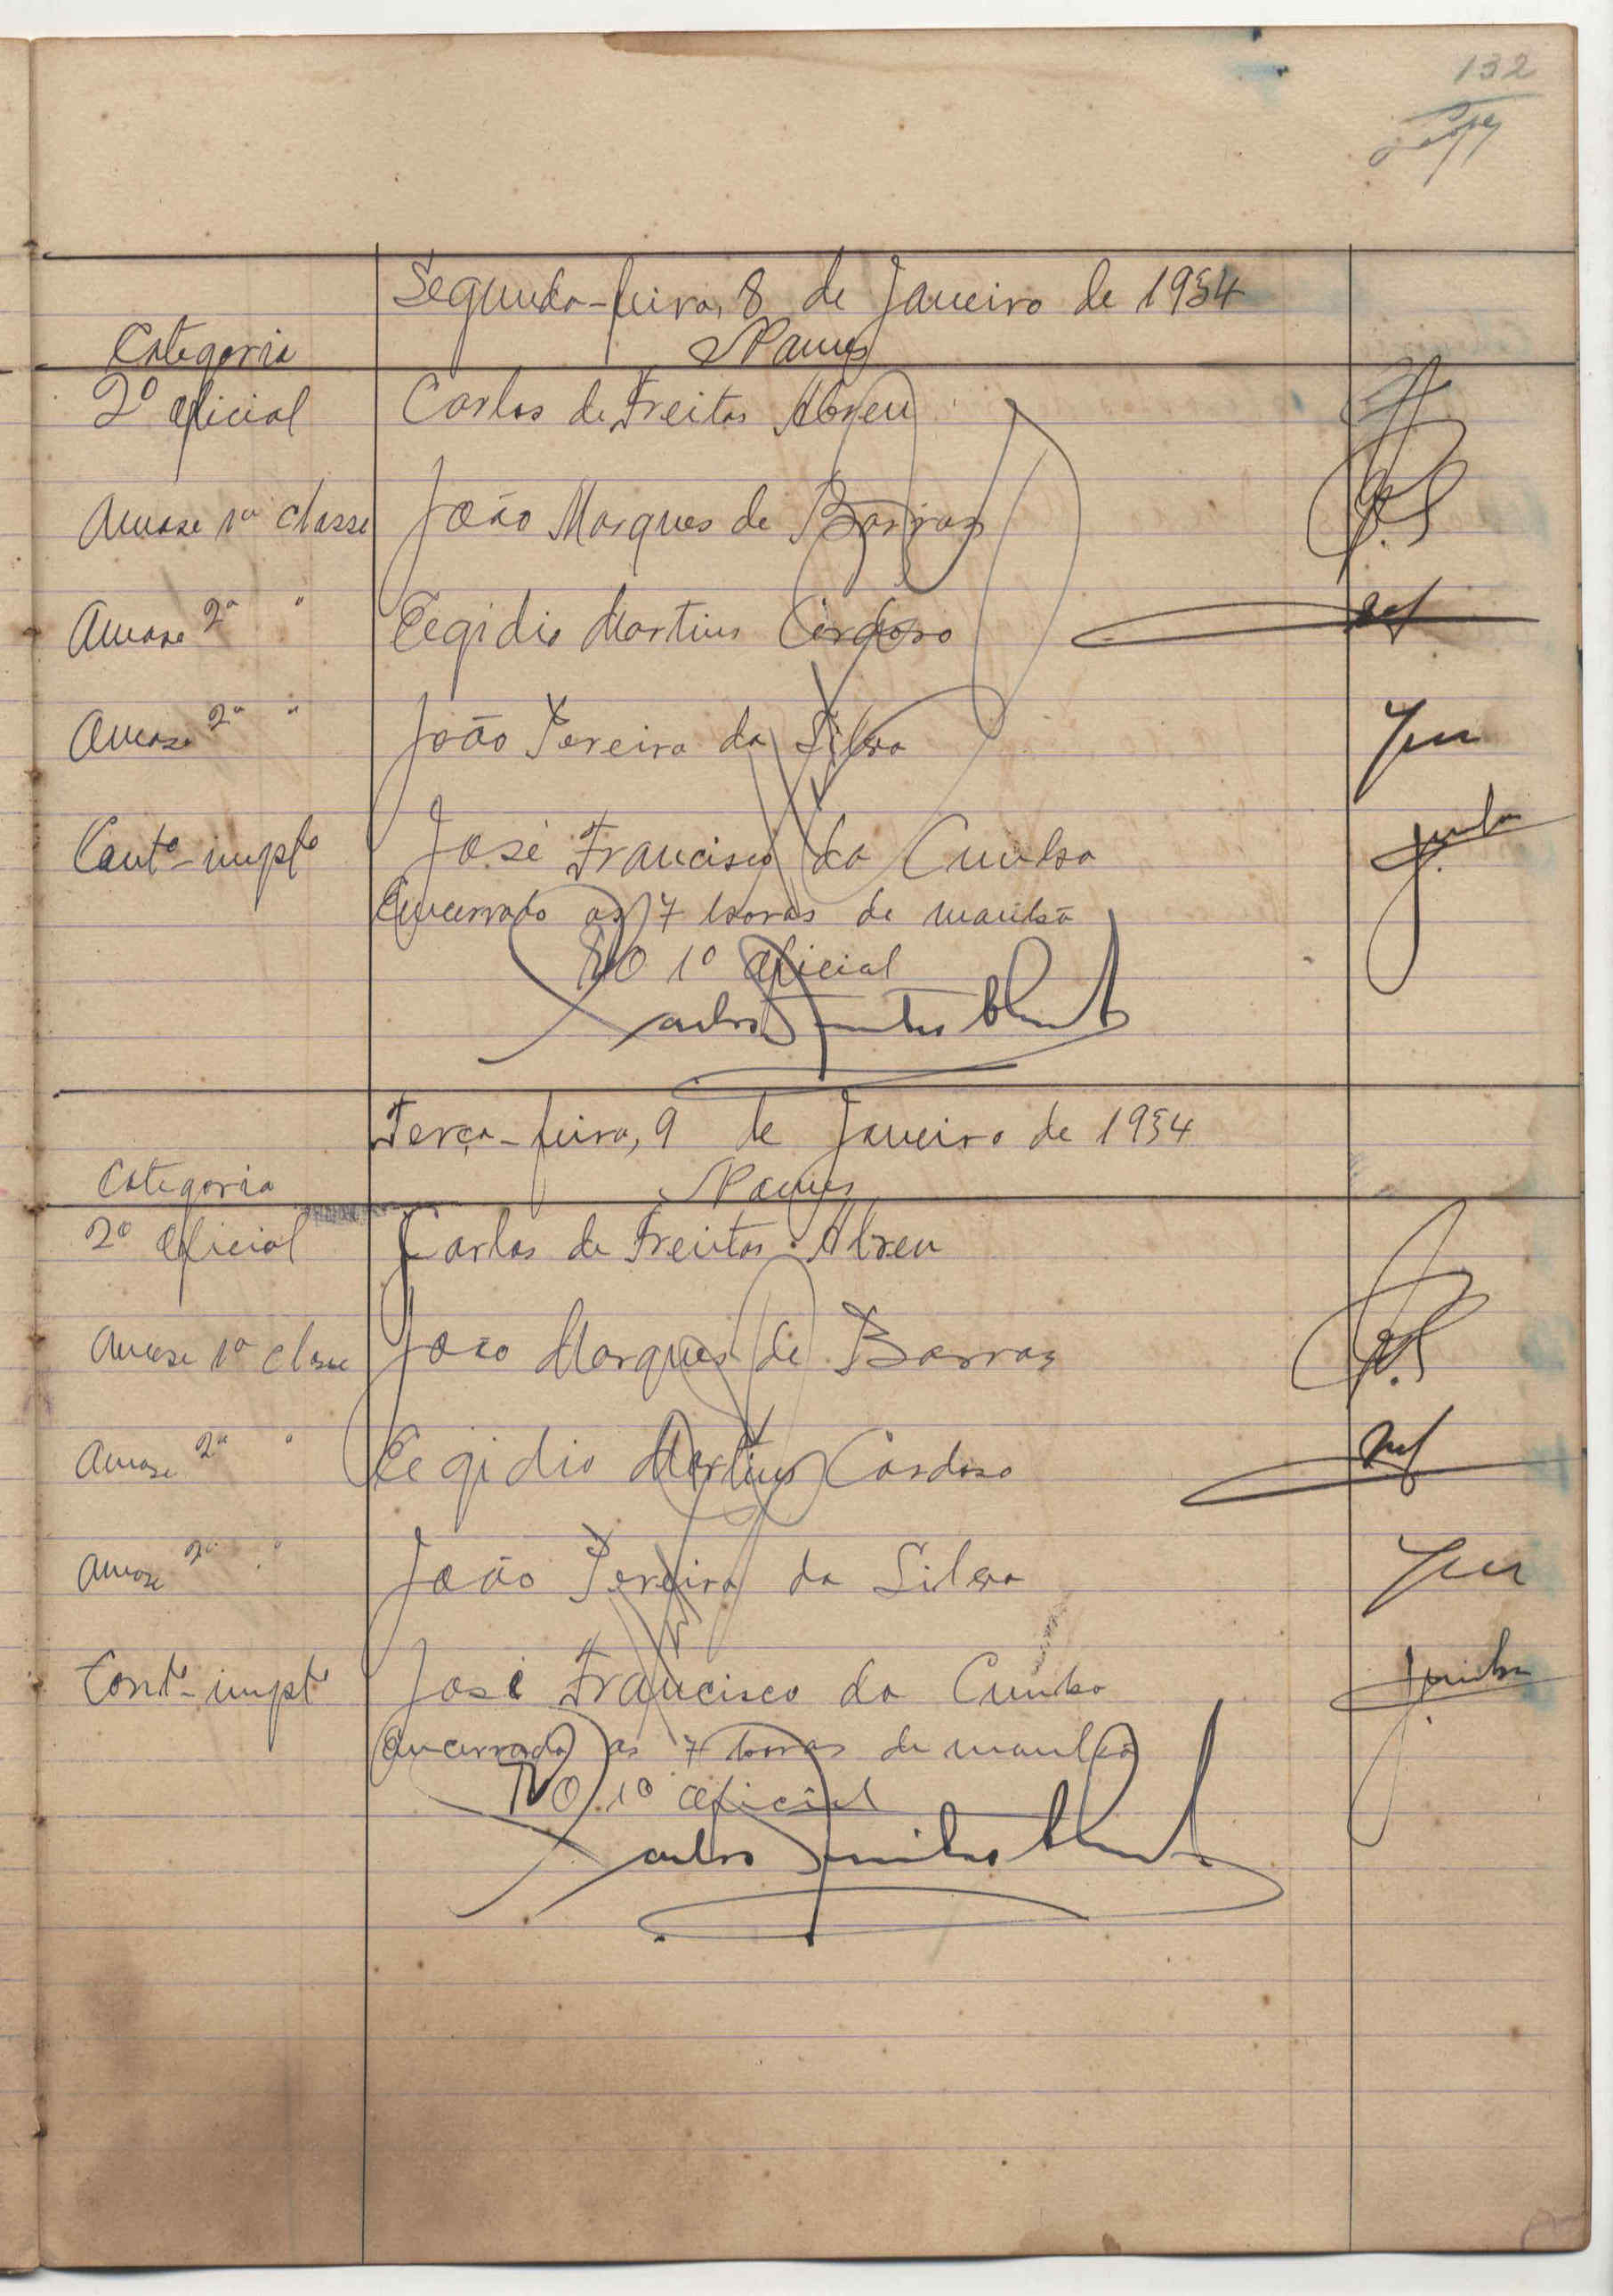 132
Segunda-feira, 8 de Janeiro de 1934
Categoria Nomes
2º oficial Carlos de Freitas Abreu
Amase 1ª classe João Marques de Barros
Amase 2ª " Eegidio Martins Cardoso
Amase 2ª " João Pereira da Silva
Contº impto José Francisco da Cunha
Encerrado as 7 horas de manhã
O 1º oficial
Terça-feira, 9 de Janeiro de 1934
Categoria Nomes
2º oficial Carlos de Freitas Abreu
Amase 1ª classe João Marques de Barros
Amase 2ª " Eegidio Martins Cardoso
Amase 2ª " João Pereira da Silva
Contº impto José Francisco da Cunha
Encerrado as 7 horas de manhã
O 1º oficial